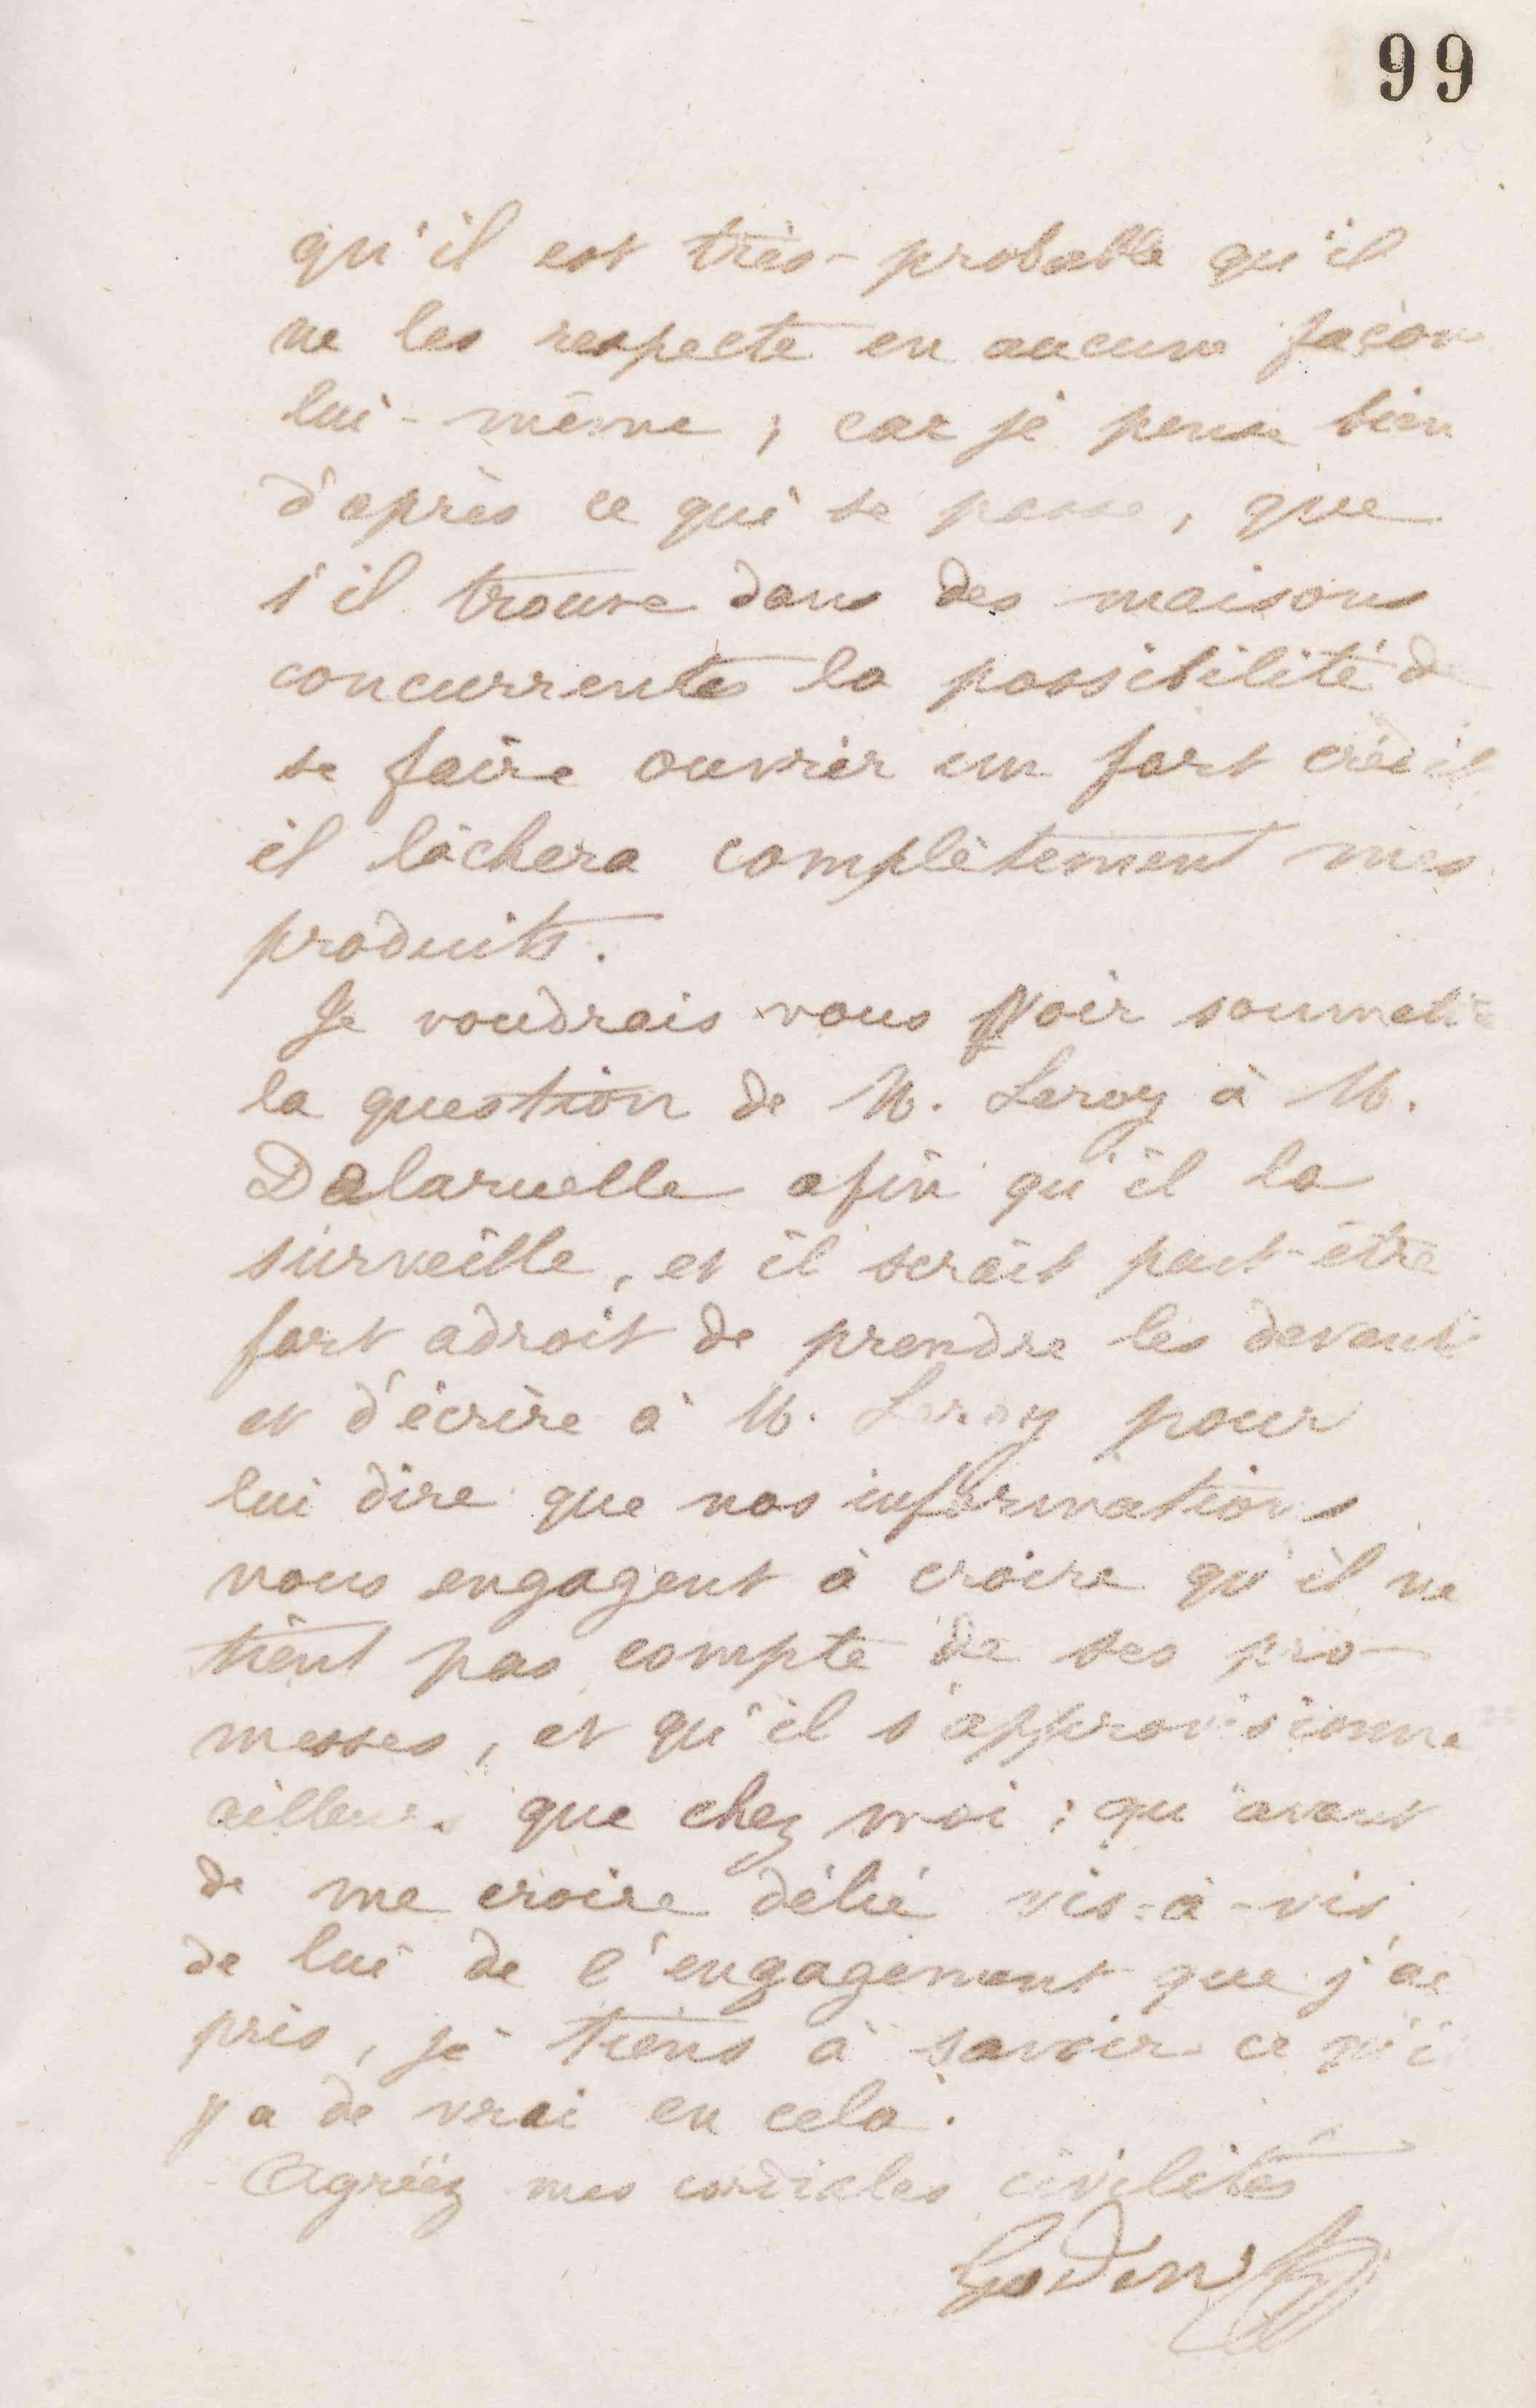 99
qu'il est très-probable qu'il
ne les respecte en aucune façon
lui-même, car je pense bien
d'après ce qui se passe, que
s'il trouve dans des maisons
concurrentes la possibilité de
se faire ouvrir un fort crédit
il lâchera complètement mes
produits.
Je voudrais vous voir soumettre
la question de M. Leroy à M.
Delaruelle afin qu'il la
surveille, et il serait peut-être
fort adroit de prendre les devants
et d'écrire à M. Leroy pour
lui dire que nos informations
nous engagent à croire qu'il ne
tient pas compte de ses pro-
messes, et qu'il s'approvisionne
ailleurs que chez moi; qu'avant
de me croire délié vis-à-vis
de lui de l'engagement que j'ai
pris, je tiens à savoir ce qu'il
y a de vrai en cela.
Agréez mes cordiales civilités
Godin